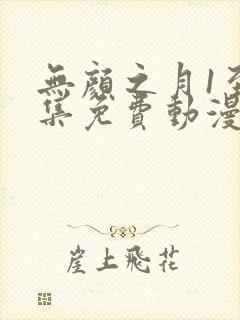 無顔之月1至
集免費動漫
崖上飛花